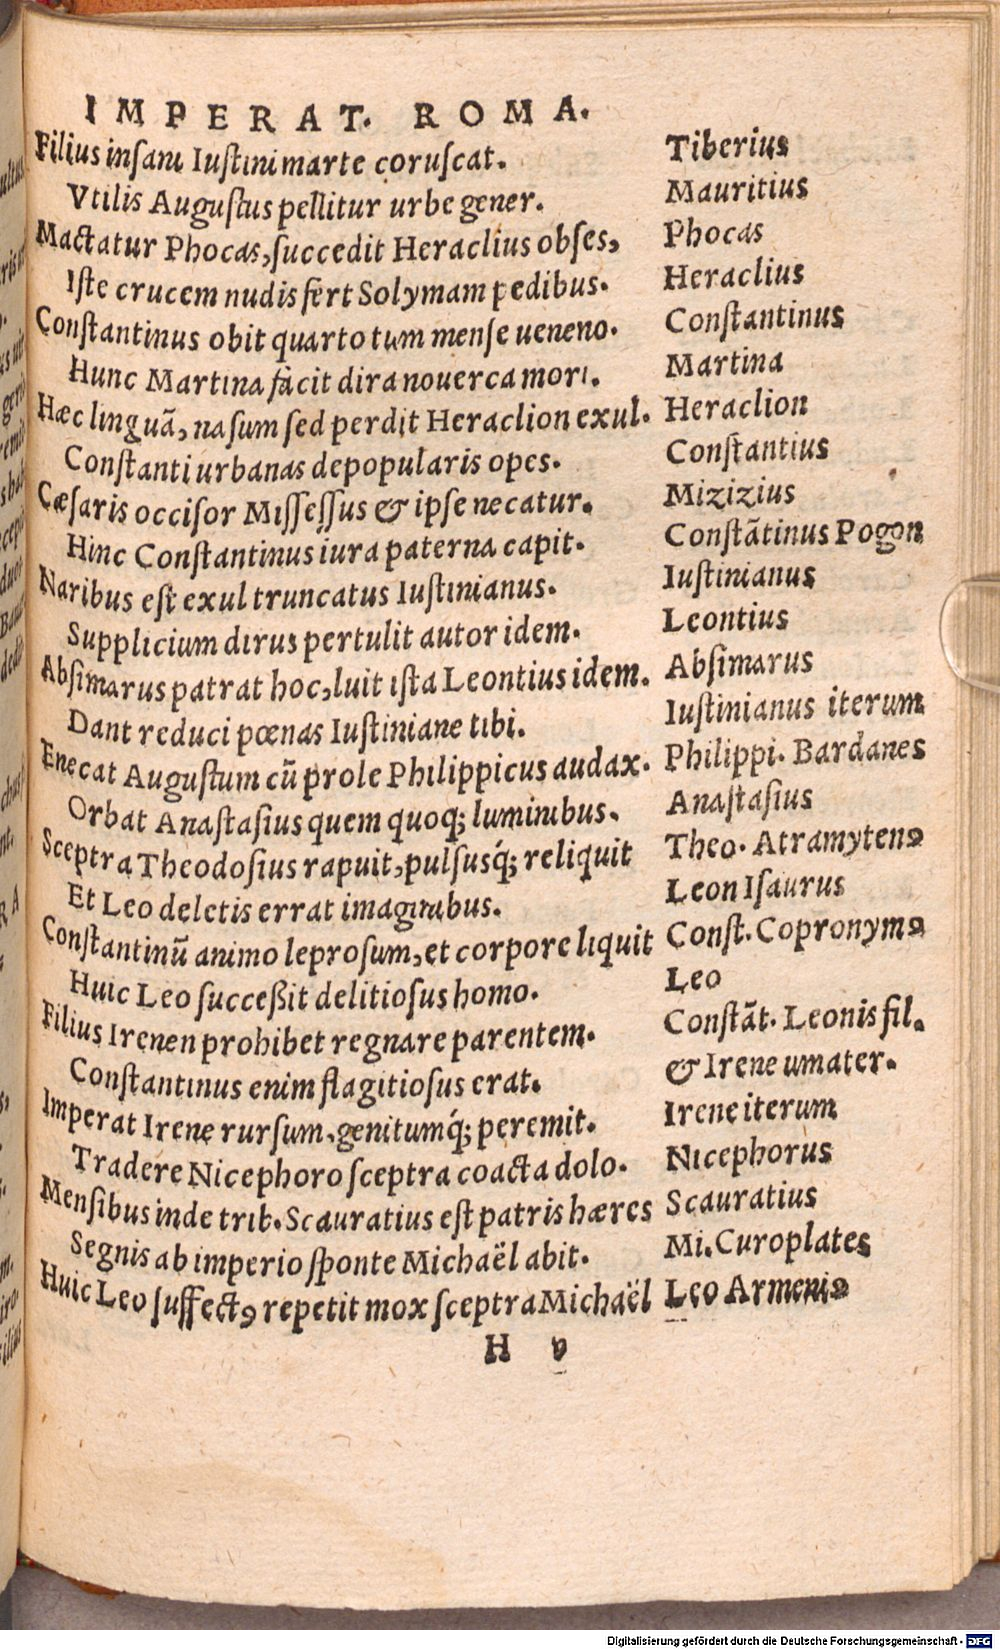 IMPERAT. ROMA.
Filius insani Iustini marte coruscat. Tiberius
Vtilis Augustus pellitur urbe gener. Mauritius
Mactatur Phocas, succedit Heraclius obses, Phocas
Iste crucem nudis fert Solymam pedibus. Heraclius
Constantinus obit quarto tum mense ueneno. Constantinus
Hunc Martina facit dira nouerca mori. Martina
Hæc linguā, nasum sed perdit Heraclion exul. Heraclion
Constanti urbanas depopularis opes. Constantius
Cæsaris occisor Missessus & ipse necatur. Mizizius
Hinc Constantinus iura paterna capit. Constātinus Pogon
Naribus est exul truncatus Iustinianus. Iustinianus
Supplicium dirus pertulit autor idem. Leontius
Absimarus patrat hoc, luit ista Leontius idem. Absimarus
Dant reduci pœnas Iustiniane tibi. Iustinianus iterum
Enecat Augustum cū prole Philippicus audax. Philippi. Bardanes
Orbat Anastasius quem quoq; luminibus. Anastasius
Sceptra Theodosius rapuit, pulsusq́; reliquit Theo. Atramytenꝯ
Et Leo deletis errat imaginibus. Leon Isaurus
Constantinū animo leprosum, et corpore liquit Const. Copronymꝯ
Huic Leo succeßit delitiosus homo. Leo
Filius Irenen prohibet regnare parentem. Constāt. Leonis fil.
Constantinus enim flagitiosus erat. & Irene umater.
Imperat Irene rursum, genitumq́; peremit. Irene iterum
Tradere Nicephoro sceptra coacta dolo. Nicephorus
Mensibus inde trib. Scauratius est patris hæres Scauratius
Segnis ab imperio sponte Michaël abit. Mi. Curoplates
Huic Leo suffectꝯ repetit mox sceptra Michaël Leo Armeniꝯ
H v
Digitalisierung gefördert durch die Deutsche Forschungsgemeinschaft - DFG